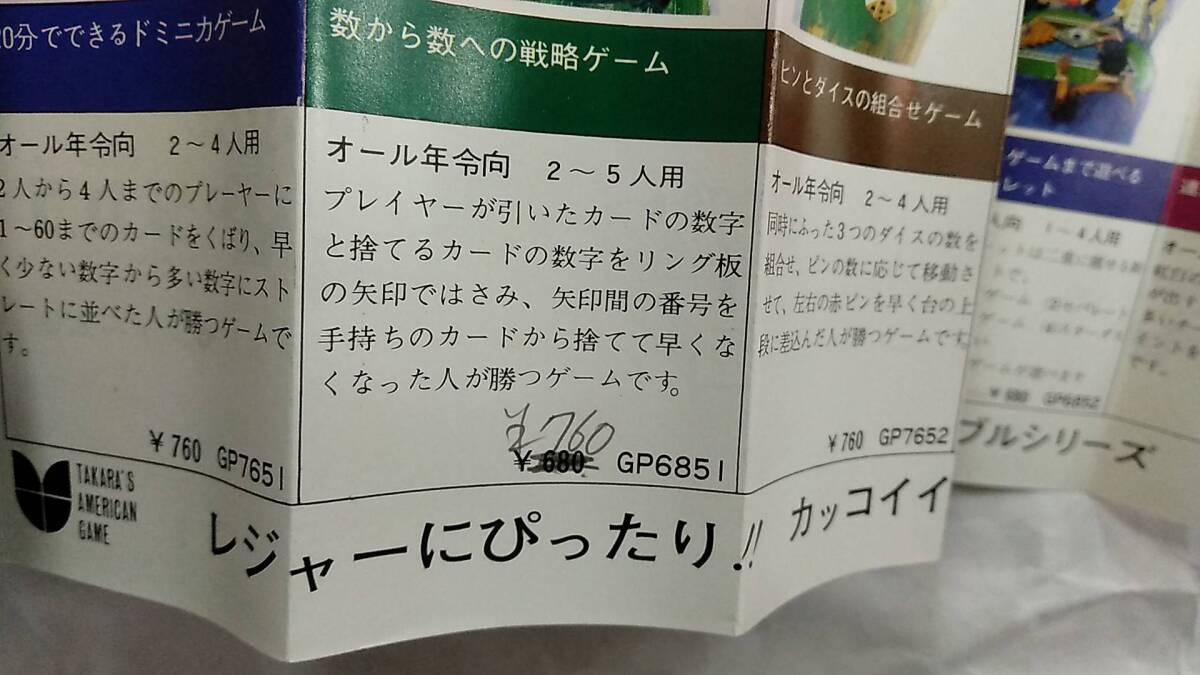 20分でできるドミニカゲーム
オール年令向 2〜4人用
2人から4人までのプレーヤーに
1〜60までのカードをくばり、早
く少ない数字から多い数字にスト
レートに並べた人が勝つゲームで
す。
¥760 GP7651
数から数への戦略ゲーム
オール年令向 2〜5人用
プレイヤーが引いたカードの数字
と捨てるカードの数字をリング板
の矢印ではさみ、矢印間の番号を
手持ちのカードから捨てて早くな
くなった人が勝つゲームです。
¥760
¥680 GP6851
ピンとダイスの組合せゲーム
オール年令向 2〜4人用
同時にふった3つのダイスの数を
組合せ、ピンの数に応じて移動さ
せて、左右の赤ピンを早く台の上
段に差込んだ人が勝つゲームです。
¥760 GP7652
ゲームまで遊べる
レット
人向 1〜4人用
ゲーム
ゲーム
¥680 GP6852
オー
TAKARA'S
AMERICAN
GAME
レジャーにぴったり!! カッコイイ
ブルシリーズ